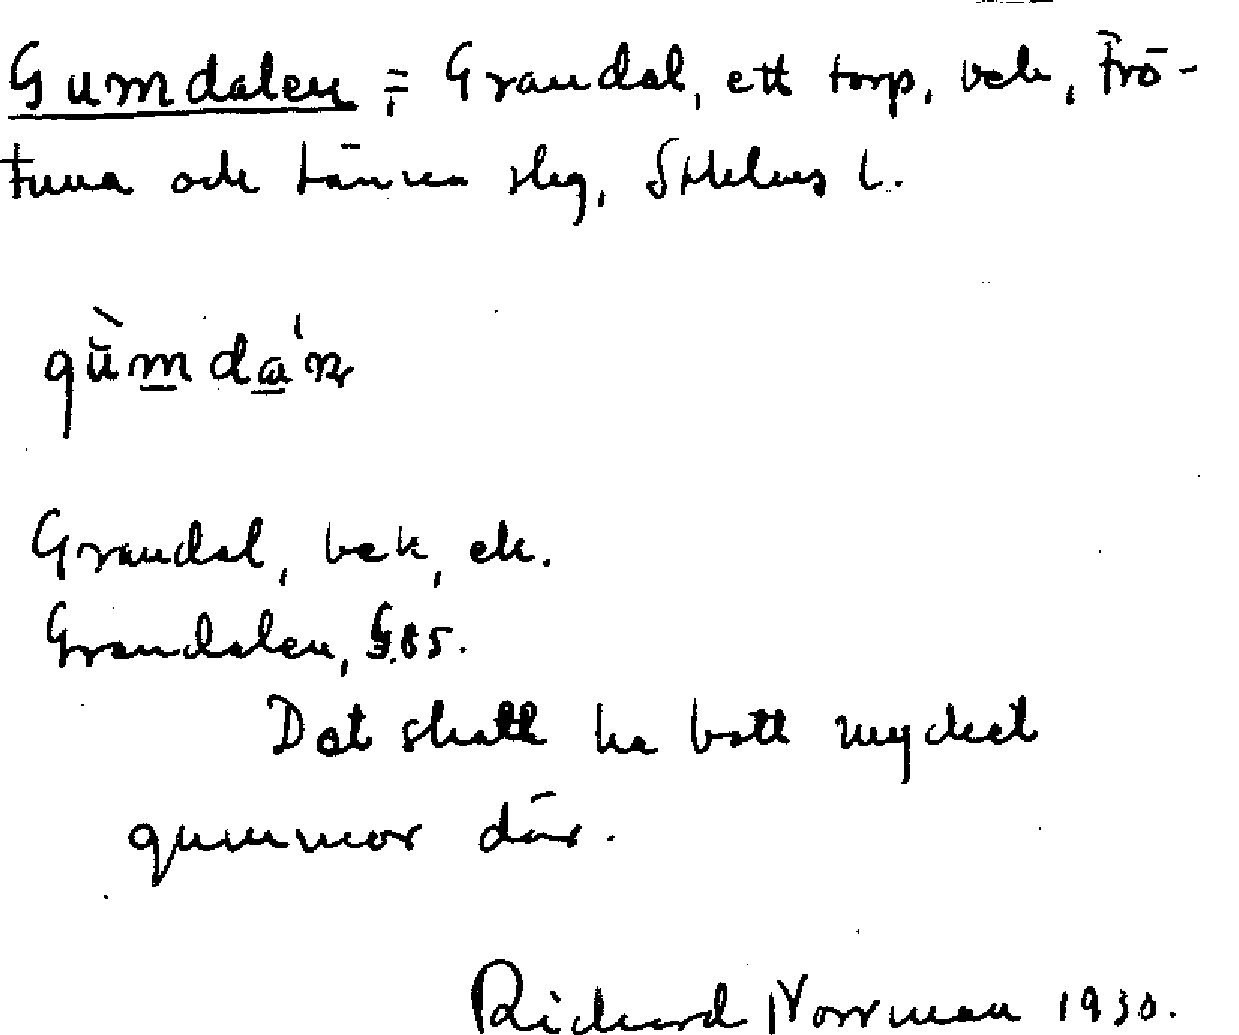 Gumdalen = Grandal, ett torp, bek, Frö-
tuna och Länna skg, Sthlms l.
gùmdạ'n
Grandal, bek, ek.
Grandalen, G.85.
Det skall ha bott mycket
gummor där.
Richard Norrman 1930.